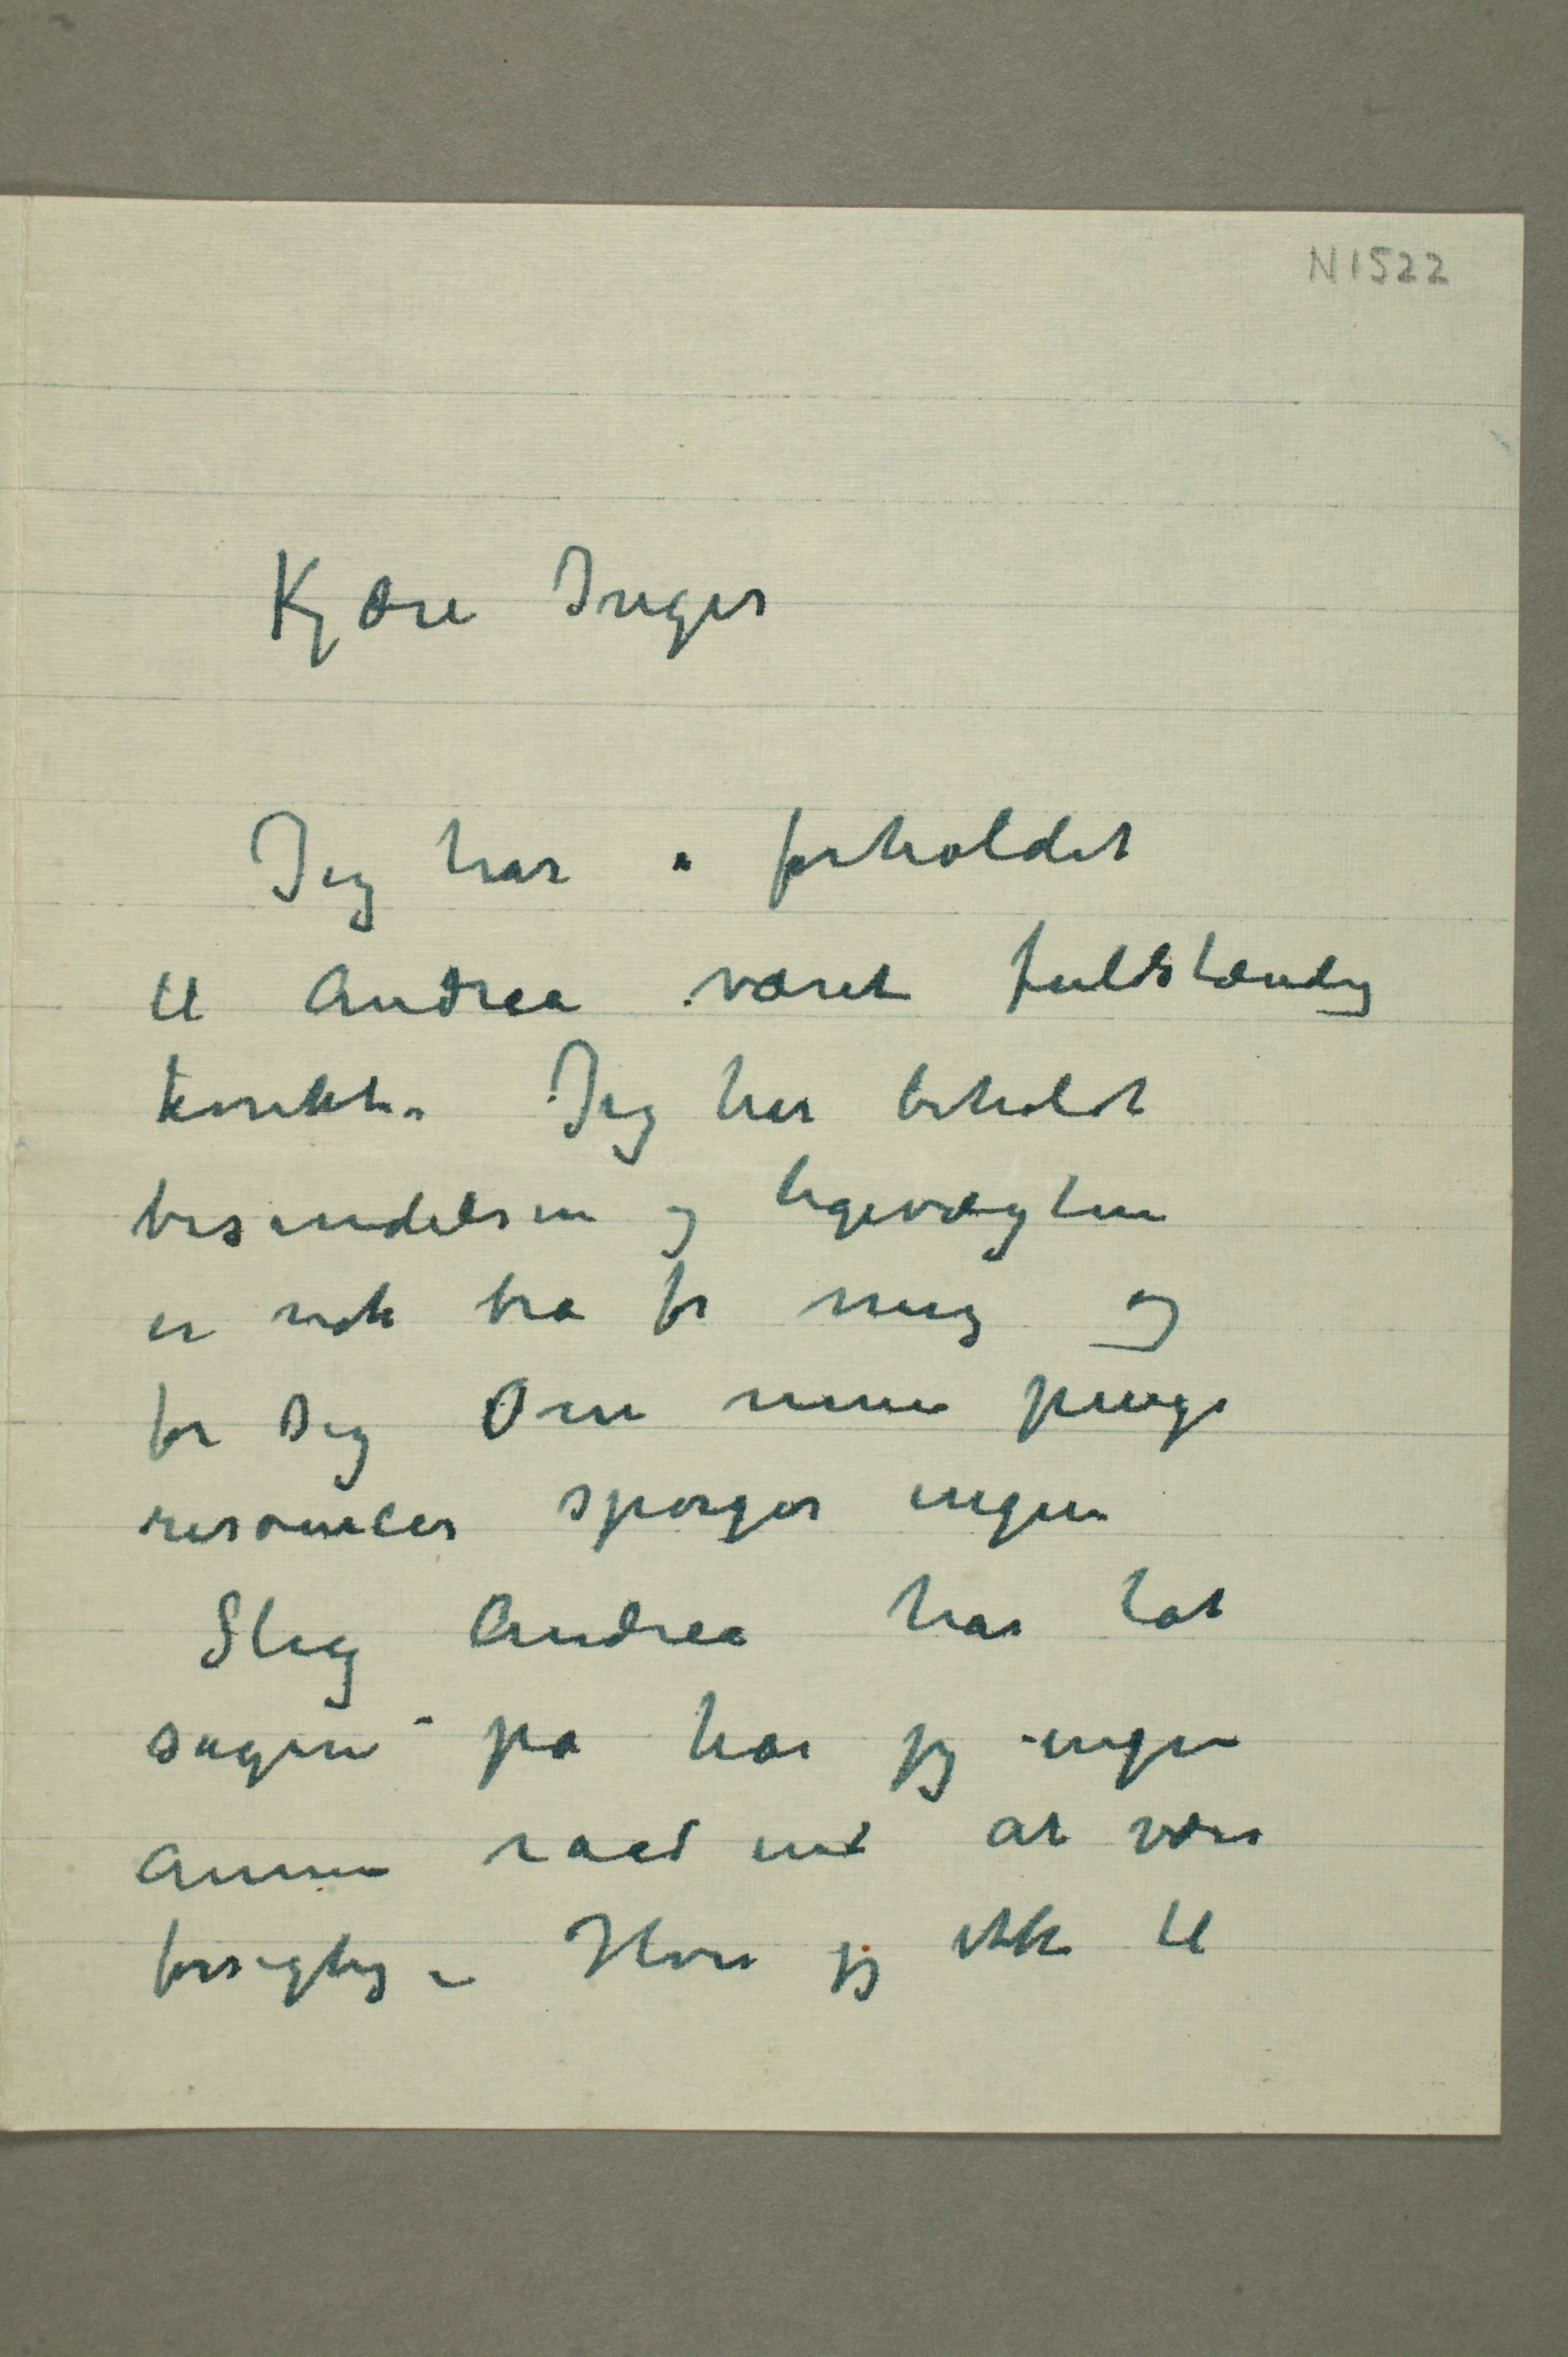 N 1522
Kjære Inger
Jeg har i forholdet
til Andrea været fuldstændig
korrekt. Jeg har beholdt
besindelsen og ligevægten
er nok bra for mig og
for Dig Om mine penge
resourcer spørger ingen
Slig Andrea har tat
sagen på har jeg ingen
annen raad end at være
forsigtig – Hvis jeg ikke til